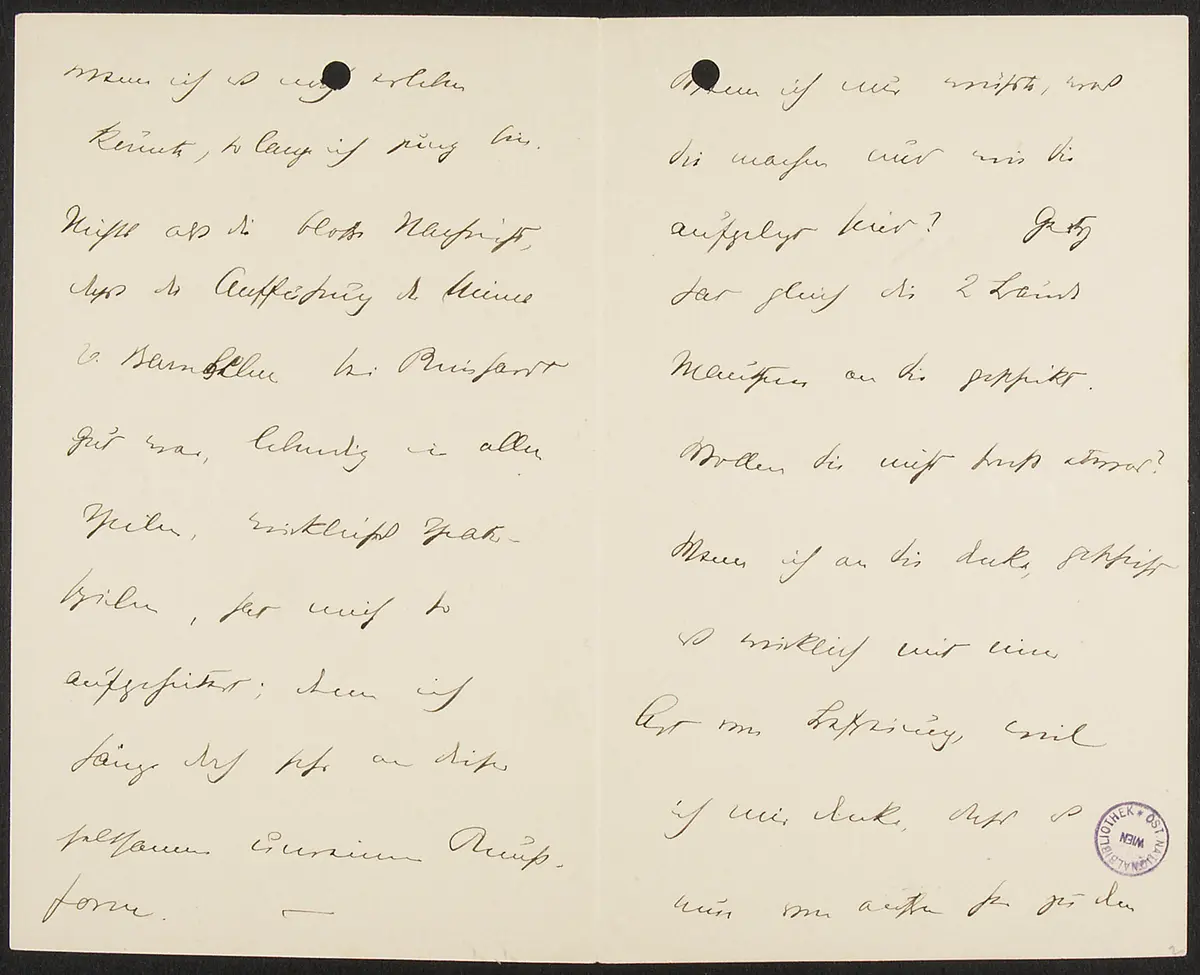 wenn ich es noch erleben
könnte, so lang ich jung bin.
Nicht als die blosse Nachricht,
dass die Aufführung der Minna
v. Barnhelm bei Reinhardt
gut war, lebendig in allen
Theilen, wirkliches Theater-
spielen, hat mich so
aufgeheitert; denn ich
hänge doch sehr an dieser
seltsamen unreinen Kunst-
form. —
Wenn ich nur wüsste, was
Sie machen und wie Sie
aufgelegt sind?
hat gleich die 2 Bände
an Sie geschickt.
Wollen Sie nicht sonst etwas?
Wenn ich an Sie denke, geschieht
es wirklich mit einer
Art von
ich mir denke, dass es
nur von aussen her zu den
ÖST. NATIONALBIBLIOTHEK
WIEN